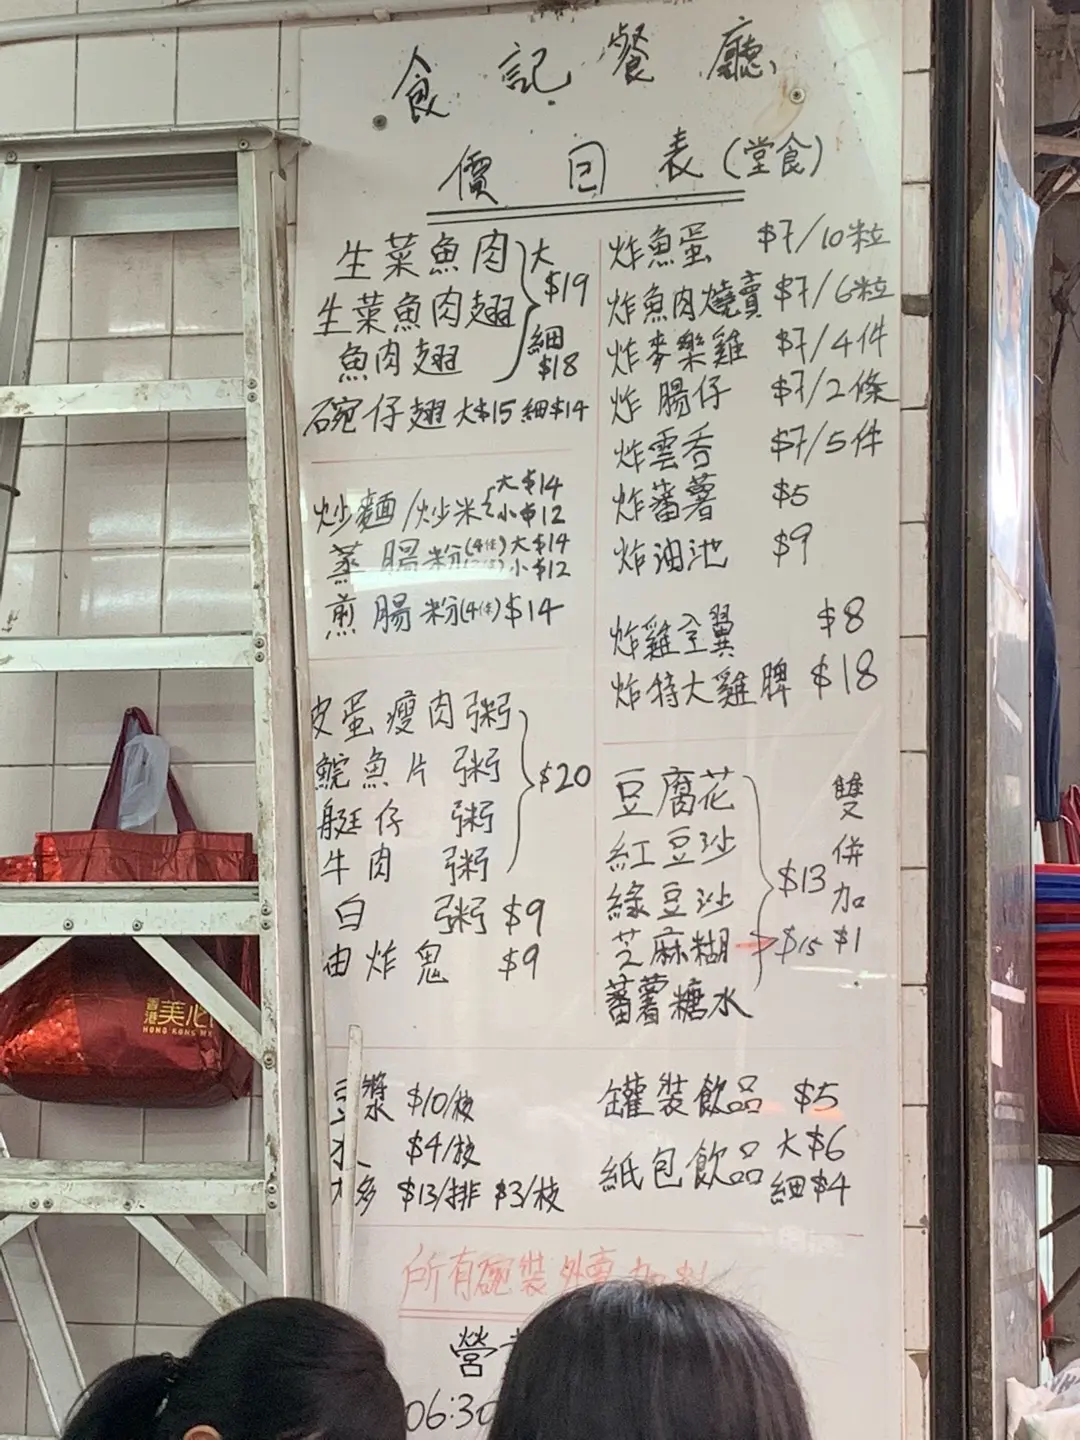 食記餐廳
價囙表(堂食)
生菜魚肉
生菜魚肉翅
魚肉翅
大
$19
細
$18
碗仔翅 大$15 細$14
炒麵/炒米 大$14
小$12
蒸腸粉(4條)大$14
小$12
煎腸粉(4條)$14
皮蛋瘦肉粥
鯇魚片粥
艇仔粥
牛肉粥
$20
白粥 $9
油炸鬼 $9
炸魚蛋 $7/10粒
炸魚肉燒賣 $7/6粒
炸麥樂雞 $7/4件
炸腸仔 $7/2條
炸雲吞 $7/5件
炸蕃薯 $5
炸油池 $9
炸雞全翼 $8
炸特大雞脾 $18
豆腐花
紅豆沙
綠豆沙
芝麻糊 $15
蕃薯糖水
$13
雙併加$1
豆漿 $10/枝
$4/枝
多 $13/排 $3/枝
罐裝飲品 $5
紙包飲品 大$6
細$4
所有碗裝外賣加
營
06:30
香港 美心
HONG KONG M